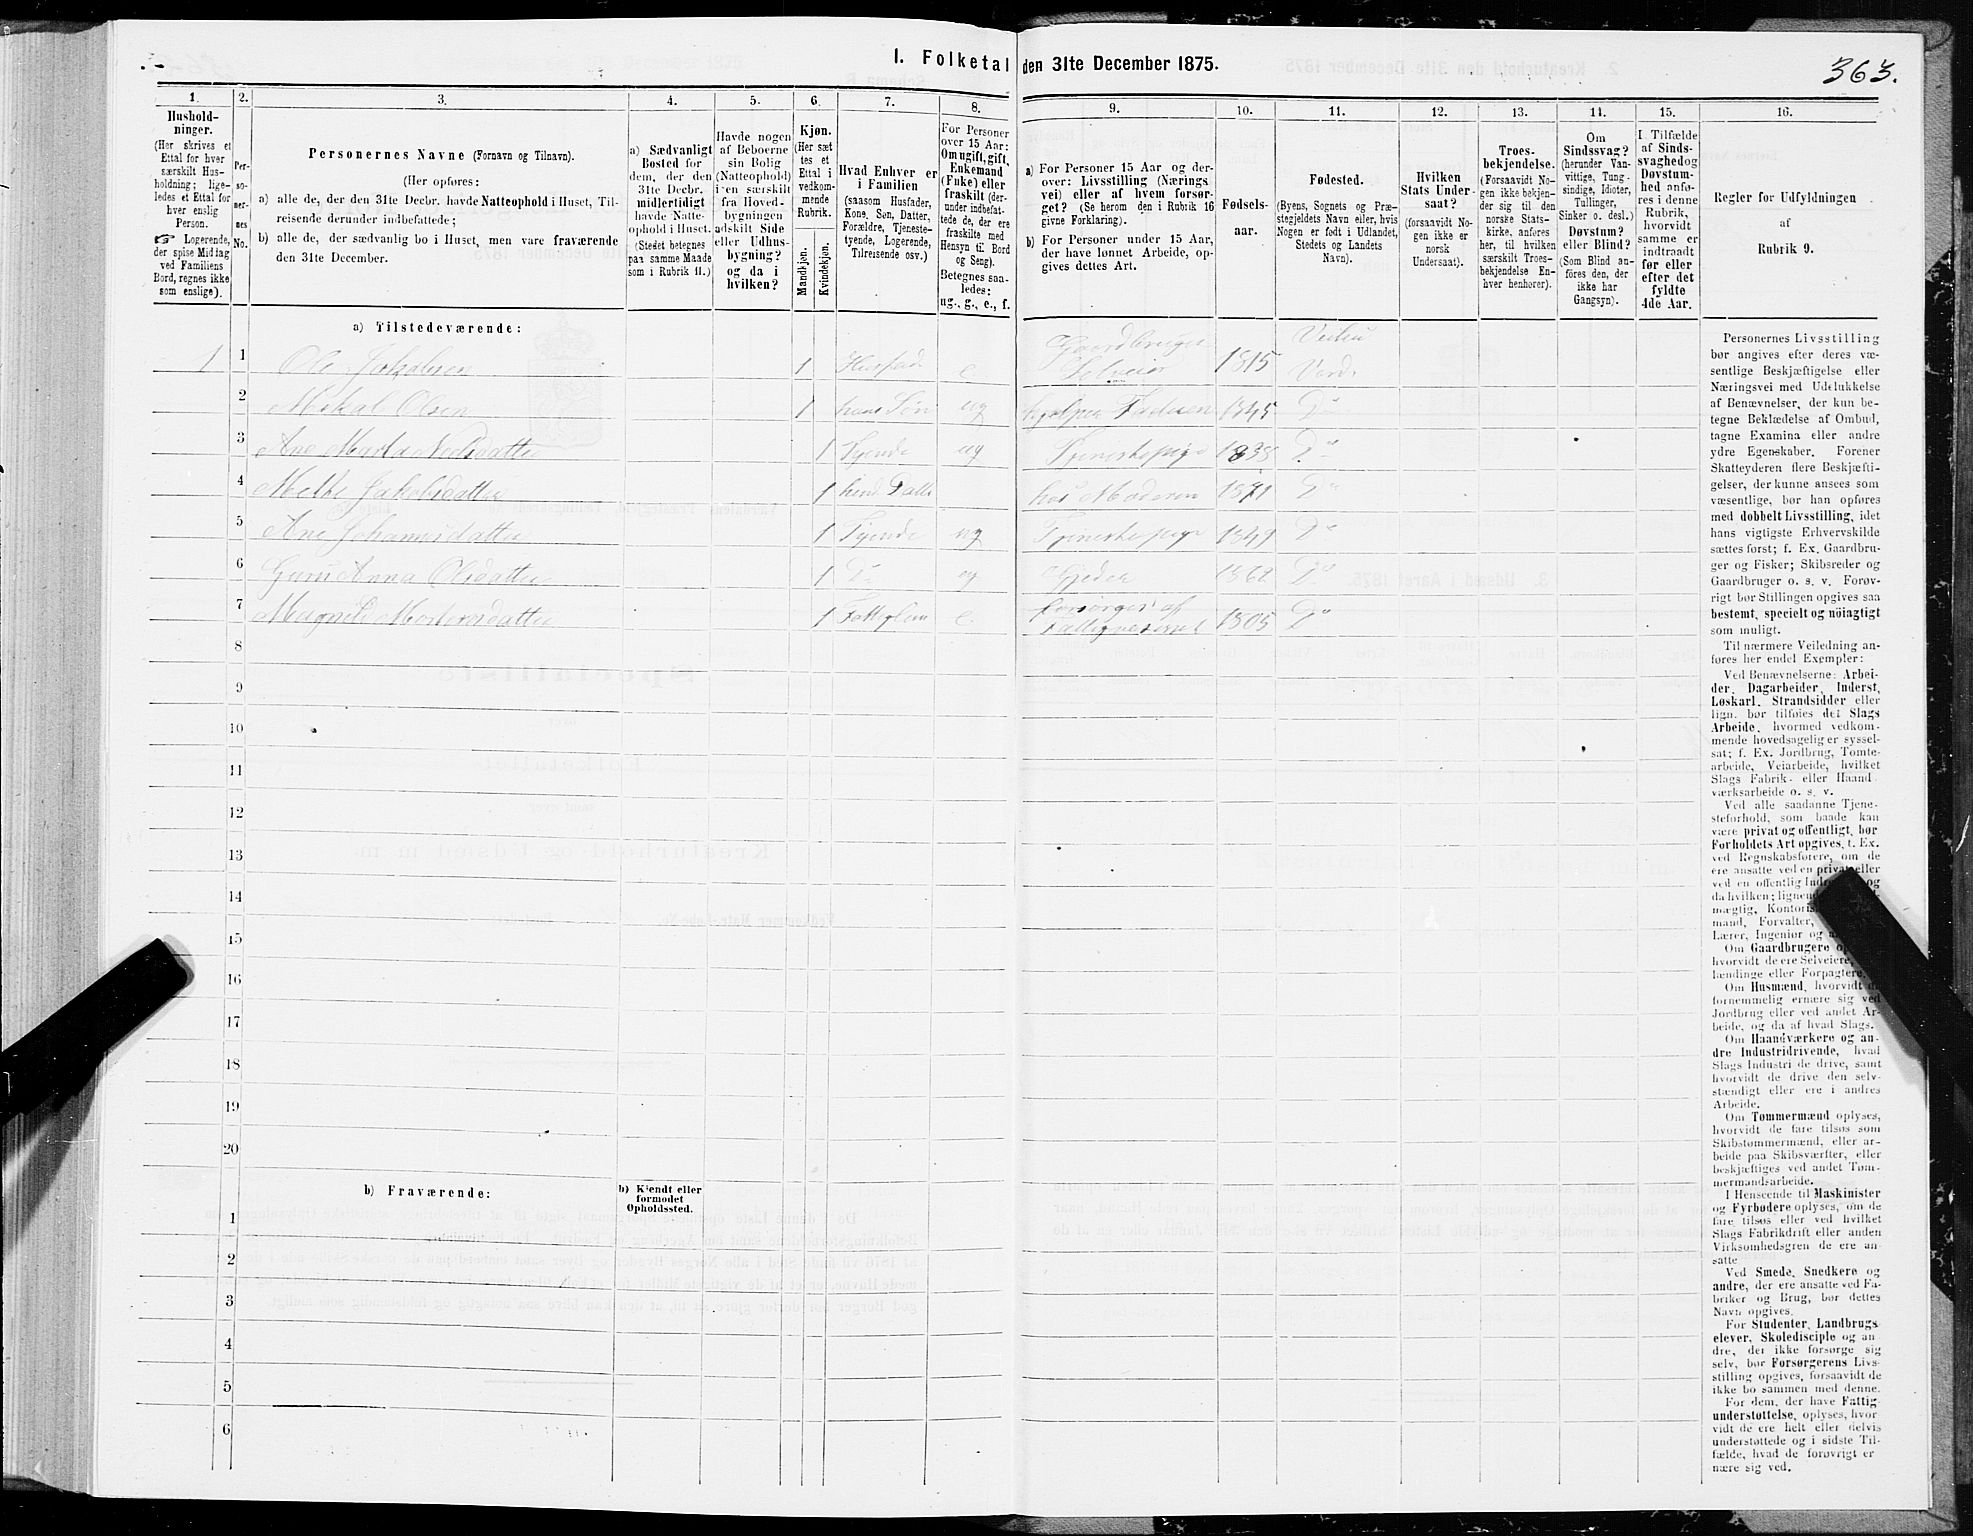 I. Folketal den 31te December 1875.
363.
1.
Hushold-
ninger.
(Her skrives et
Ettal for hver
særskilt Hus-
holdning; lige-
ledes et Ettal for
hver enslig
Person.
☞ Logerende,
der spise Middag
ved Familiens
Bord, regnes ikke
som enslige).
2.
Per-
so-
ner-
nes
No.
3.
Personernes Navne (Fornavn og Tilnavn).
(Her opføres:
a) alle de, der den 31te Decbr. havde Natteophold i Huset, Til-
reisende derunder indbefattede;
b) alle de, der sædvanlig bo i Huset, men vare fraværende
den 31te December.
4.
a) Sædvanligt
Bosted for
dem, der den
31te Decbr.
midlertidigt
havde Natte-
ophold i Huset.
(Stedet betegnes
paa samme Maade
som i Rubrik 11.)
5.
Havde nogen
af Beboerne
sin Bolig
(Natteophold)
i en særskilt
fra Hoved-
bygningen
adskilt Side
eller Udhus-
bygning?
og da i
hvilken?
6.
Kjøn.
(Her sæt
tes et
Ettal i
vedkom-
mende
Rubrik.
Mandkjøn.
Kvindekjøn.
7.
Hvad Enhver er
i Familien
(saasom Husfader,
Kone, Søn, Datter,
Forældre, Tjeneste-
tyende, Logerende,
Tilreisende osv.)
8.
For Personer
over 15 Aar:
Om ugift, gift,
Enkemand
(Enke) eller
fraskilt (der-
under indbefat-
tede de, der ere
fraskilte med
Hensyn til Bord
og Seng).
Betegnes saa-
ledes:
ug., g., e., f.
9.
a) For Personer 15 Aar og der-
over: Livsstilling (Nærings
vei) eller af hvem forsør-
get? (Se herom den i Rubrik 16
givne Forklaring).
b) For Personer under 15 Aar,
der have lønnet Arbeide, op-
gives dettes Art.
10.
Fødsels-
aar.
11.
Fødested.
(Byens, Sognets og Præ-
stegjeldets Navn eller, hvis
Nogen er født i Udlandet,
Stedets og Landets
Navn).
12.
Hvilken
Stats Under-
saat?
(forsaavidt No-
gen ikke er
norsk
Undersaat).
13.
Troes-
bekjendelse.
(Forsaavidt No-
gen ikke bekjen-
der sig til den
norske Stats-
kirke, anføres
her, til hvilken
særskilt Troes-
bekjendelse En-
hver henhører).
14.
Om
Sindssvag?
(herunder Van-
vittige, Tung-
sindige, Idioter,
Tullinger,
Sinker o. desl.)
Døvstum?
eller Blind?
(Som Blind an-
føres den, der
ikke har
Gangsyn).
15.
I Tilfælde
af Sinds-
svaghed og
Døvstum-
hed anfø-
res i denne
Rubrik,
hvorvidt
samme er
indtraadt
før eller
efter det
fyldte
4de Aar.
16.
Regler for Udfyldningen
af
Rubrik 9.
a) Tilstedeværende:
1 1 Ole Jakobsen 1 e Gaardbruger Selveier 1815
2 Mikal Olsen 1 hans Søn ug hjelper Faderen 1845 Do
3 1 Tyende ug Tjenestepige Do
4 Jakobsdatter 1 hos Moderen 1871 Do
5 Ane Johannesdatter 1 Tyende ug Tjenestepige 1849 Do
6 Anna Olsdatter 1 Do ug Gjeder 1862 Do
7 1 e. forsørges af 1805 Do
8
9
10
11
12
13
14
15
16
17
18
19
20
b) Fraværende:
b) Kjendt eller
formodet
Opholdssted.
1
2
3
4
5
6
Personernes Livsstilling
bør angives efter deres væ-
sentlige Beskjæftigelse eller
Næringsvei med Udelukkelse
af Benævnelser, der kun be-
tegne Beklædelse af Ombud,
tagne Examina eller andre
ydre Egenskaber. Forener
Skatteyderen flere Beskjæfti-
gelser, der kunne ansees som
væsentlige, bør han opføres
med dobbelt Livsstilling, idet
hans vigtigste Erhvervskilde
sættes først; f. Ex. Gaardbru-
ger og Fisker; Skibsreder og
Gaardbruger o. s. v. Forøv-
rigt bør Stillingen opgives saa
bestemt, specielt og nöiagtigt
som muligt.
Til nærmere Veiledning an-
føres her endel Exempler:
Ved Benævnelserne: Arbei-
der, Dagarbeider, Inderst,
Løskarl, Strandsidder eller
lign. bør tilføies det Slags
Arbeide, hvormed vedkom-
mende hovedsagelig er syssel-
sat; f. Ex. Jordbrug, Tomte-
arbeide, Veiarbeide, hvilket
Slags Fabrik- eller Haand
værksarbeide o. s. v.
Ved alle saadanne Tjene-
steforhold, som baade kan
være privat og offentligt, bør
Forholdets Art opgives, f. Ex.
ved Regnskabsførere, om de
ere ansatte ved en privat eller
ved en offentlig og
da hvilken;
mægtig,
mand, Forvalter,
Lærer, Ingeniør og
Om Gaardbrugere
hvorvidt de ere Selveiere,
lændinge eller Forpagtere.
Om Husmænd, hvorvidt de
fornemmelig ernære sig ved
Jordbrug eller ved andet Ar-
beide, og da af hvad Slags.
Om Haandværkere og an-
dre Industridrivende, hvad
Slags Industri de drive, samt
hvorvidt de drive den selv-
stændigt eller ere i andres
Arbeide.
Om Tømmermænd oplyses,
hvorvidt de fare tilsøs som
Skibstømmermænd, eller ar-
beide paa Skibsværfter, eller
beskjæftiges ved andet Tøm-
mermandsarbeide.
I Henseende til Maskinister
og Fyrbødere oplyses, om de
fare tilsøs eller ved hvilket
Slags Fabrikdrift eller anden
Virksomhedsgren de ere an-
satte
Ved Smede, Snedkere og
andre, der ere ansatte ved Fa-
briker og Brug, bør dettes
Navn opgives.
For Studenter, Landbrugs
elever, Skoledisciple og an
dre, der ikke forsørge sig
selv, bør Forsørgerens Livs-
stilling opgives, forsaavidt de
ikke bo sammen med denne.
For dem, der have Fattig
understøttelse, oplyses, hvor-
vidt de ere helt eller delvis
understøttede og i sidste Til-
fælde, hvad de forøvrigt er
nære sig ved.